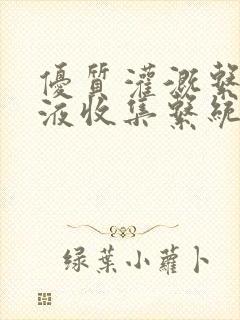 優質灌溉繫
液收集繫統
绿葉小蘿卜